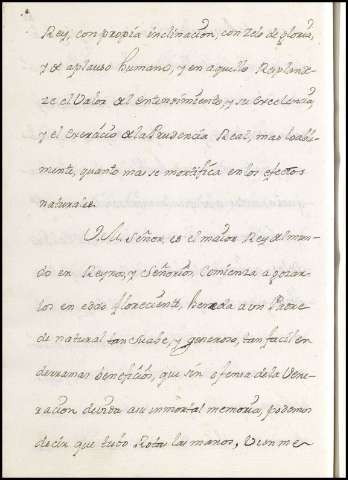 Rey, con propia inclinacion, con zelo de gloria,
y de aplauso humano, y en aquello Resplande-
ze el Valor del entendimiento, y su excelencia,
y el exercicio de la Prudencia Real, mas loable-
mente, quanto mas se mortifica en los efectos
naturales.
V. M. Señor, es el maior Rey del mun-
do en Reynos, y Señorios. Comienza a gozar-
los en edad florecient͏e, hereda a un Padre
de natural tan suabe, y generoso, tan facil en
derramar beneficios, que sin ofensa de la Vene-
racion devida a su inmortal memoria, podemos
decir que tubo Rotas las manos,